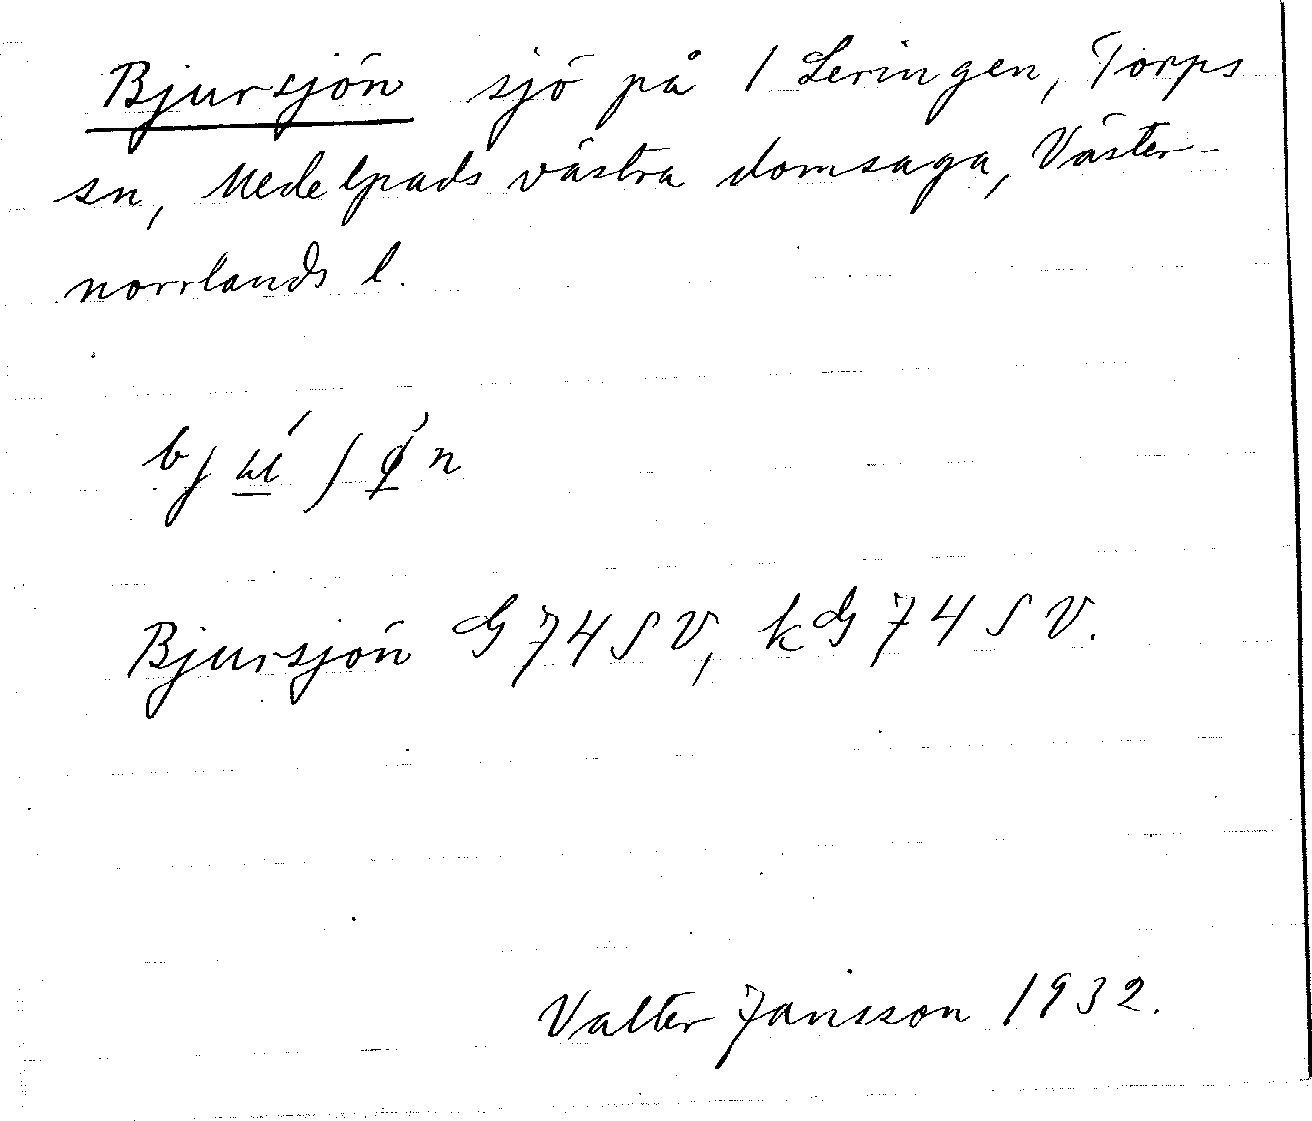 Bjursjön sjö på 1 Leringen, Torps
sn, Medelpads västra domsaga, Väster-
norrlands l.
bjú̲ʃǿ̲n
Bjursjön G 74 SV, kG 74 SV.
Valter Jansson 1932.